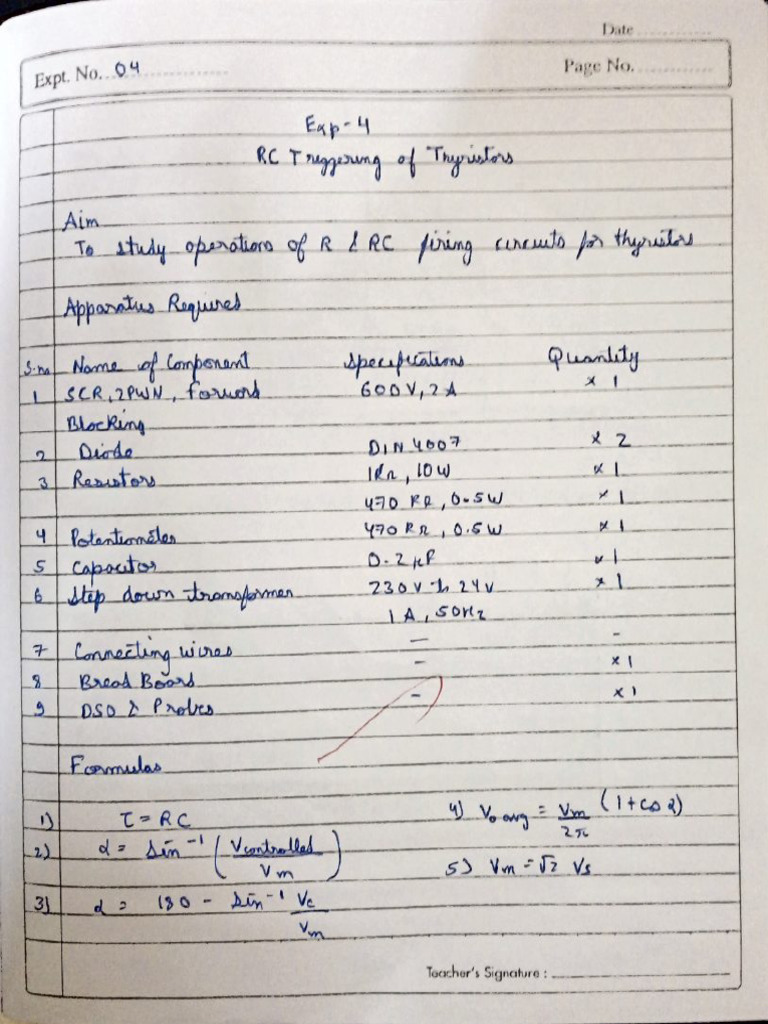 Date
Expt. No. 04
Page No.
Exp-4
RC Triggering of Thyristors
Aim
To study operations of R & RC firing circuits for thyristors
Apparatus Required
S.no Name of Component Specifications Quantity
1 SCR, 2PWN, forword 600V, 2A × 1
Blocking
2 Diode DIN 4007 × 2
3 Resistors 1KΩ, 10W × 1
470 KΩ, 0.5W × 1
4 Potentiometer 470 KΩ, 0.5W × 1
5 Capacitor 0.2 μF × 1
6 Step down transformer 230V to 24V × 1
1A, 50Hz
7 Connecting wires — -
8 Bread Board - × 1
9 DSO & Probes - × 1
Formulas
1) τ = RC 4) Vo avg = Vm/2π (1+cos α)
2) α = Sin⁻¹ (Vcontrolled/Vm)
5) Vm = √2 Vs
3) α = 180 - Sin⁻¹ Vc/Vm
Teacher's Signature :